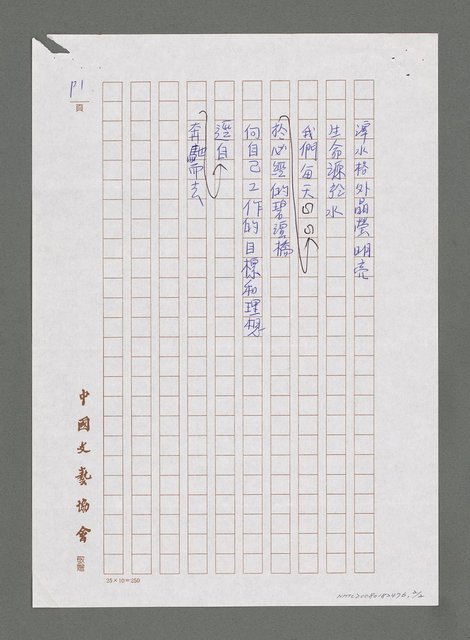 潭水格外晶瑩明亮
生命源於水
我們每天
於必經的碧潭橋
向自己工作的目標和理想
逕自
奔馳而去
P1
頁
中國文藝協會
敬贈
25×10=250
NMTL20080182476, 2/2